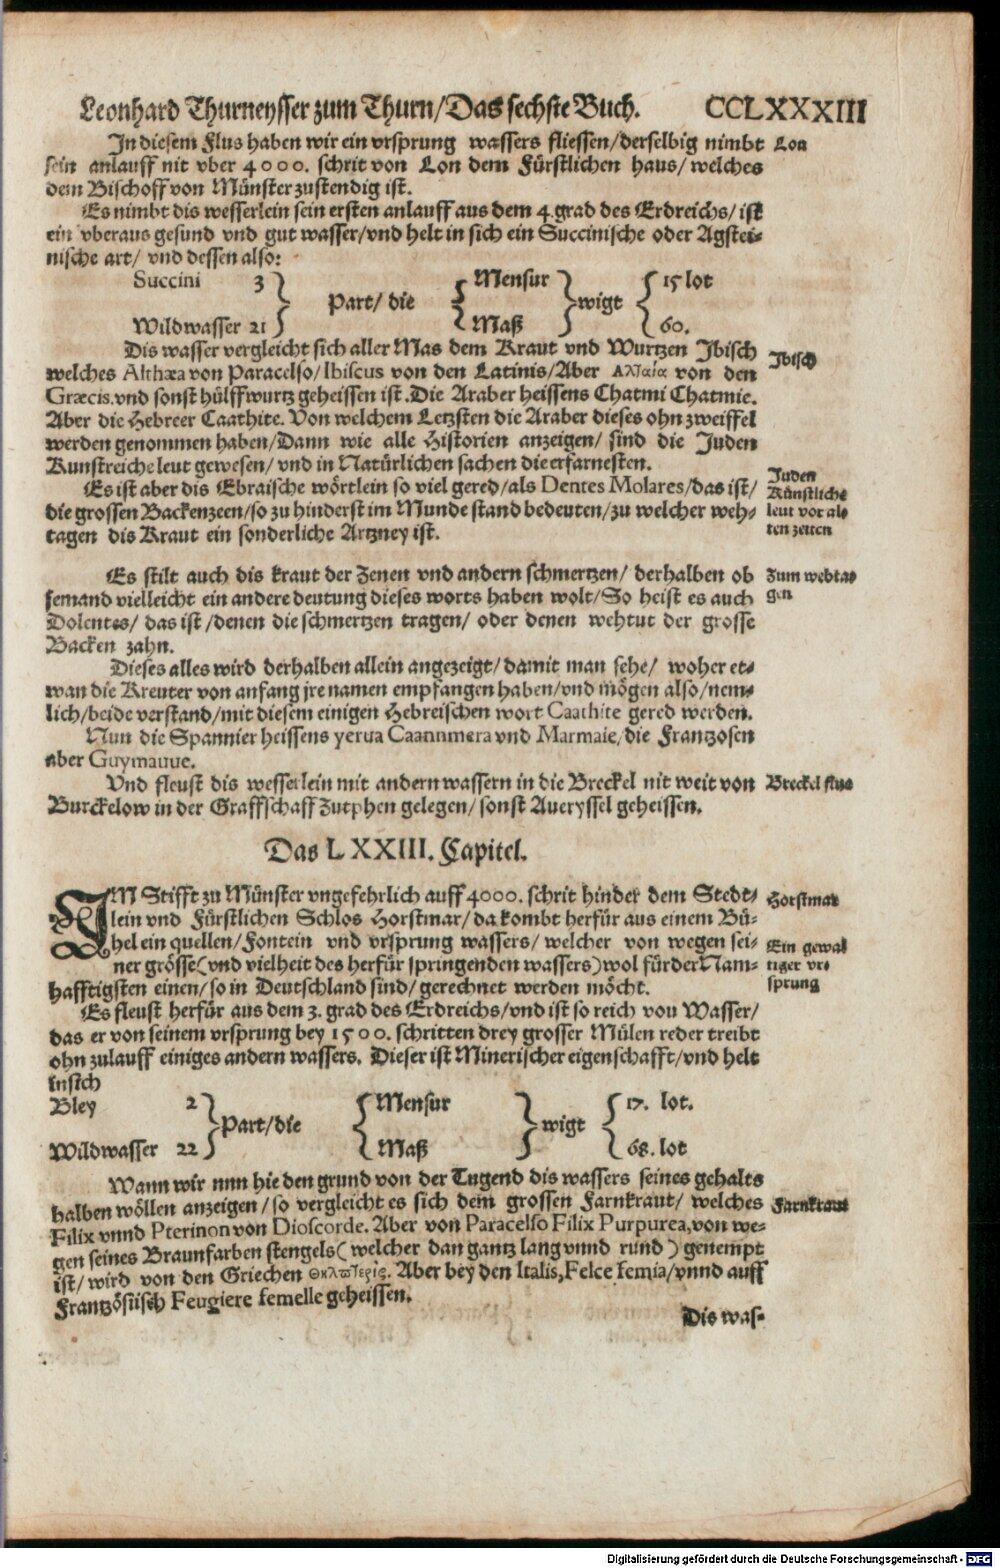 Leonhard Thurneysser zum Thurn/Das sechste Buch. CCLXXXIII
In diesem Flus haben wir ein vrsprung wassers fliessen/derselbig nimbt
Lon
sein anlauff nit vber 4000. schrit von Lon dem Fürstlichen haus/welches
dem Bischoff von Münster zustendig ist.
Es nimbt dis wesserlein sein ersten anlauff aus dem 4. grad des Erdreichs/ist
ein vberaus gesund vnd gut wasser/vnd helt in sich ein Succinische oder Agstei-
nische art/vnd dessen also:
Succini 3 } Part/die { Mensur } wigt { 15 lot
Wildwasser 21 Maß 60.
Dis wasser vergleicht sich aller Mas dem Kraut vnd Wurtzen Jbisch
Jbisch
welches Althæa von Paracelso/Ibiscus von den Latinis/Aber von den
Græcis.vnd sonst hülffwurtz geheissen ist. Die Araber heissens Chatmi Chatmie.
Aber die Hebreer Caathite. Von welchem Letzsten die Araber dieses ohn zweiffel
werden genommen haben/Dann wie alle Historien anzeigen/sind die Juden
Kunstreiche leut gewesen/vnd in Natürlichen sachen die erfarnesten.
Juden
Künstliche
leut vor al-
ten zeiten
Es ist aber dis Ebraische wörtlein so viel gered/als Dentes Molares/das ist/
die grossen Backenzeen/so zu hinderst im Munde stand bedeuten/zu welcher weh-
tagen dis Kraut ein sonderliche Artzney ist.
Es stilt auch dis kraut der Zenen vnd andern schmertzen/derhalben ob
Zum wehta-
gen
jemand vielleicht ein andere deutung dieses worts haben wolt/So heist es auch
Dolentes/das ist/denen die schmertzen tragen/oder denen wehtut der grosse
Backen zahn.
Dieses alles wird derhalben allein angezeigt/damit man sehe/woher et-
wan die Kreuter von anfang jre namen empfangen haben/vnd mögen also/nem-
lich/beide verstand/mit diesem einigen Hebreischen wort Caathite gered werden.
Nun die Spannier heissens yerua Caanmera vnd Marmaie/die Frantzosen
aber Guymauue.
Vnd fleust dis wesserlein mit andern wassern in die Breckel nit weit von
Breckel flus
Burckelow in der Graffschaff Zutphen gelegen/sonst Aueryssel geheissen.
Das LXXIII. Capitel.
JM Stifft zu Münster vngefehrlich auff 4000. schrit hinder dem Stedt-
Horstmar
lein vnd Fürstlichen Schlos Horstmar/da kombt herfür aus einem Bü-
hel ein quellen/Fontein vnd vrsprung wassers/welcher von wegen sei-
Ein gewal
tiger vr-
sprung
ner grösse(vnd vielheit des herfür springenden wassers)wol für der Nam-
hafftigsten einen/so in Deutschland sind/gerechnet werden möcht.
Es fleust herfür aus dem 3. grad des Erdreichs/vnd ist so reich von Wasser/
das er von seinem vrsprung bey 1500. schritten drey grosser Mülen reder treibt
ohn zulauff einiges andern wassers. Dieser ist Minerischer eigenschafft/vnd helt
insich
Bley 2 } Part/die { Mensur } wigt { 17. lot.
Wildwasser 22 Maß 68. lot
Wann wir nun hie den grund von der Tugend dis wassers seines gehalts
halben wöllen anzeigen/so vergleicht es sich dem grossen Farnkraut/welches
Farnkraut
Filix vnnd Pterinon von Dioscorde. Aber von Paracelso Filix Purpurea,von we-
gen seines Braunfarben stengels(welcher dan gantz lang vnnd rund)genempt
ist/wird von den Griechen . Aber bey den Italis,Felce femia/vnnd auff
Frantzösisch Feugiere femelle geheissen.
Dis was-
Digitalisierung gefördert durch die Deutsche Forschungsgemeinschaft - DFG